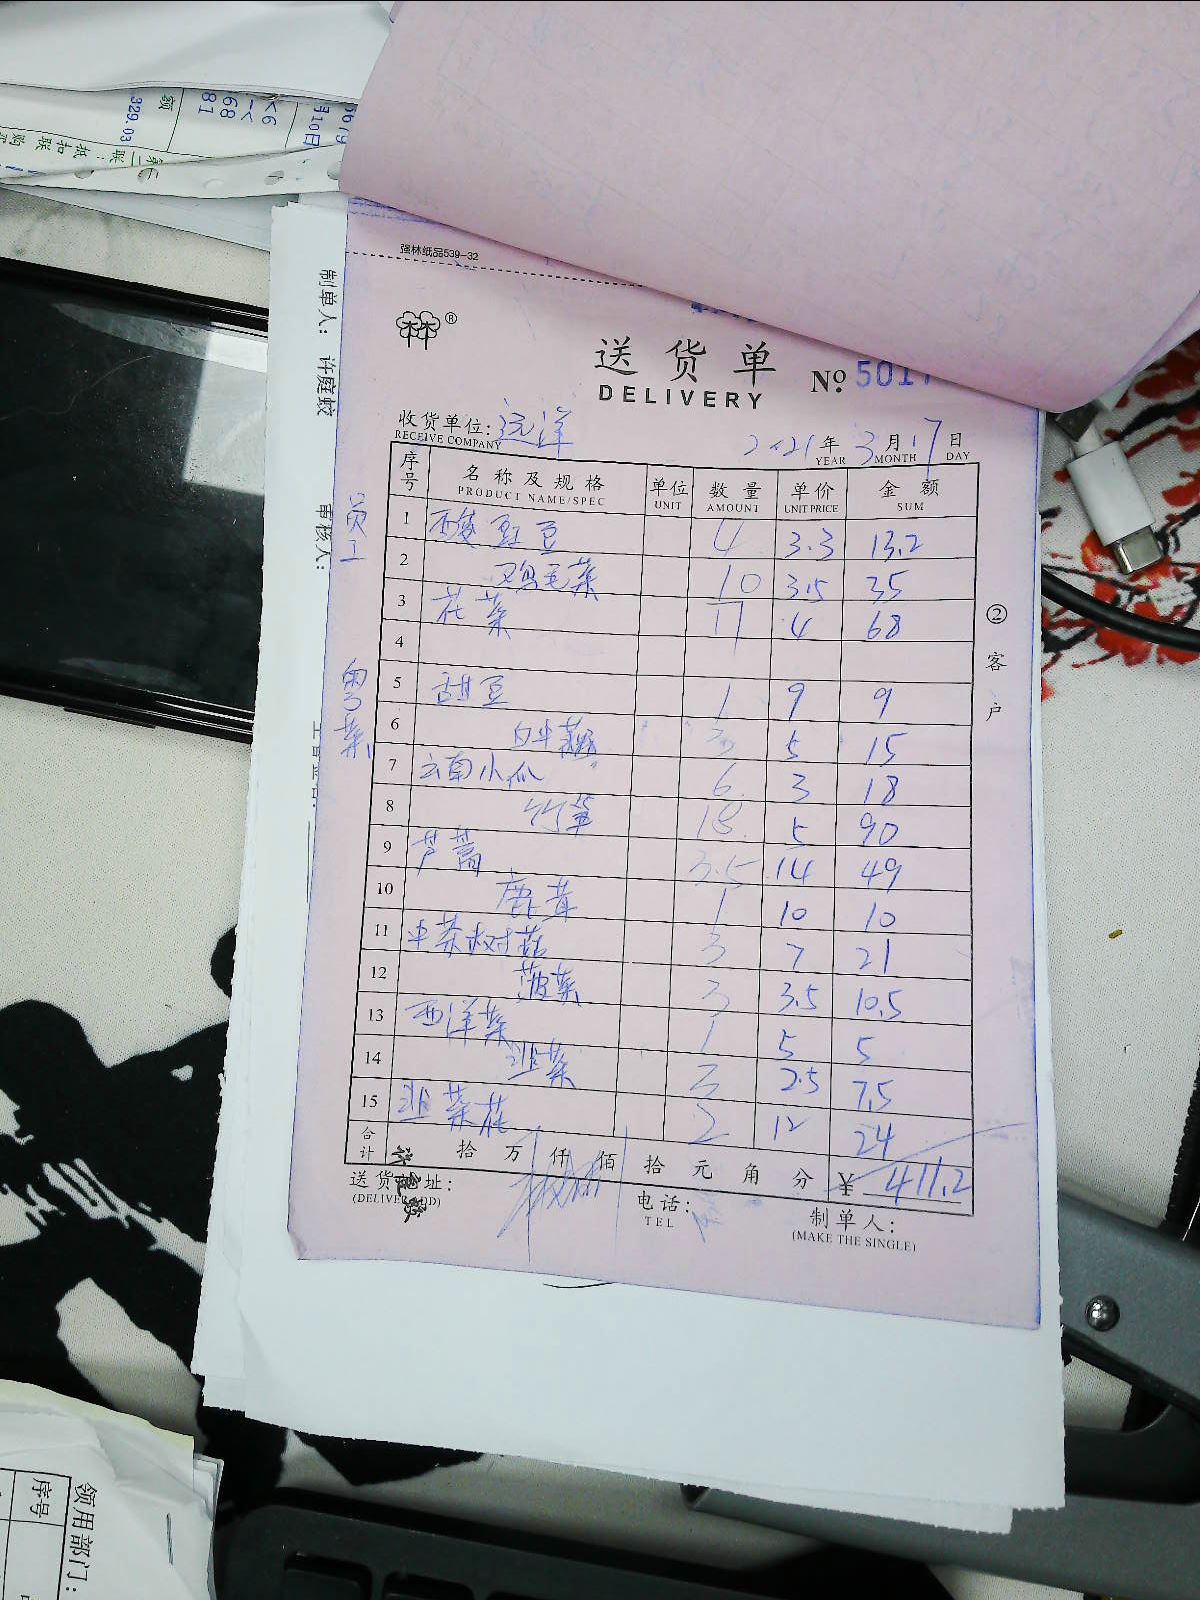 强林纸品539-32
林®
送货单 No. 5017
DELIVERY
收货单位: 远洋 2021年3月17日
RECEIVE COMPANY YEAR MONTH DAY
序号 名称及规格 单位 数量 单价 金额
PRODUCT NAME/SPEC UNIT AMOUNT UNIT PRICE SUM
员工
1 酸豇豆 4 3.3 13.2
2 鸡毛菜 10 3.5 35
3 花菜 17 4 68
4
粤菜
5 甜豆 1 9 9
6 5 15
7 云南小瓜 6 3 18
8 竹笋 18 5 90
9 芦蒿 3.5 14 49
10 鹿茸 1 10 10
11 茶树菇 3 7 21
12 菠菜 3 3.5 10.5
13 西洋菜 1 5 5
14 韭菜 3 2.5 7.5
15 韭菜花 2 12 24
合计 拾万仟佰拾元角分 ¥ 411.2
送货地址: 电话: 制单人:
(DELIVER ADD) TEL (MAKE THE SINGLE)
许庭蛟
②客户
制单人: 许庭蛟
审核人:
329.03
额
月10日
领用部门:
序号